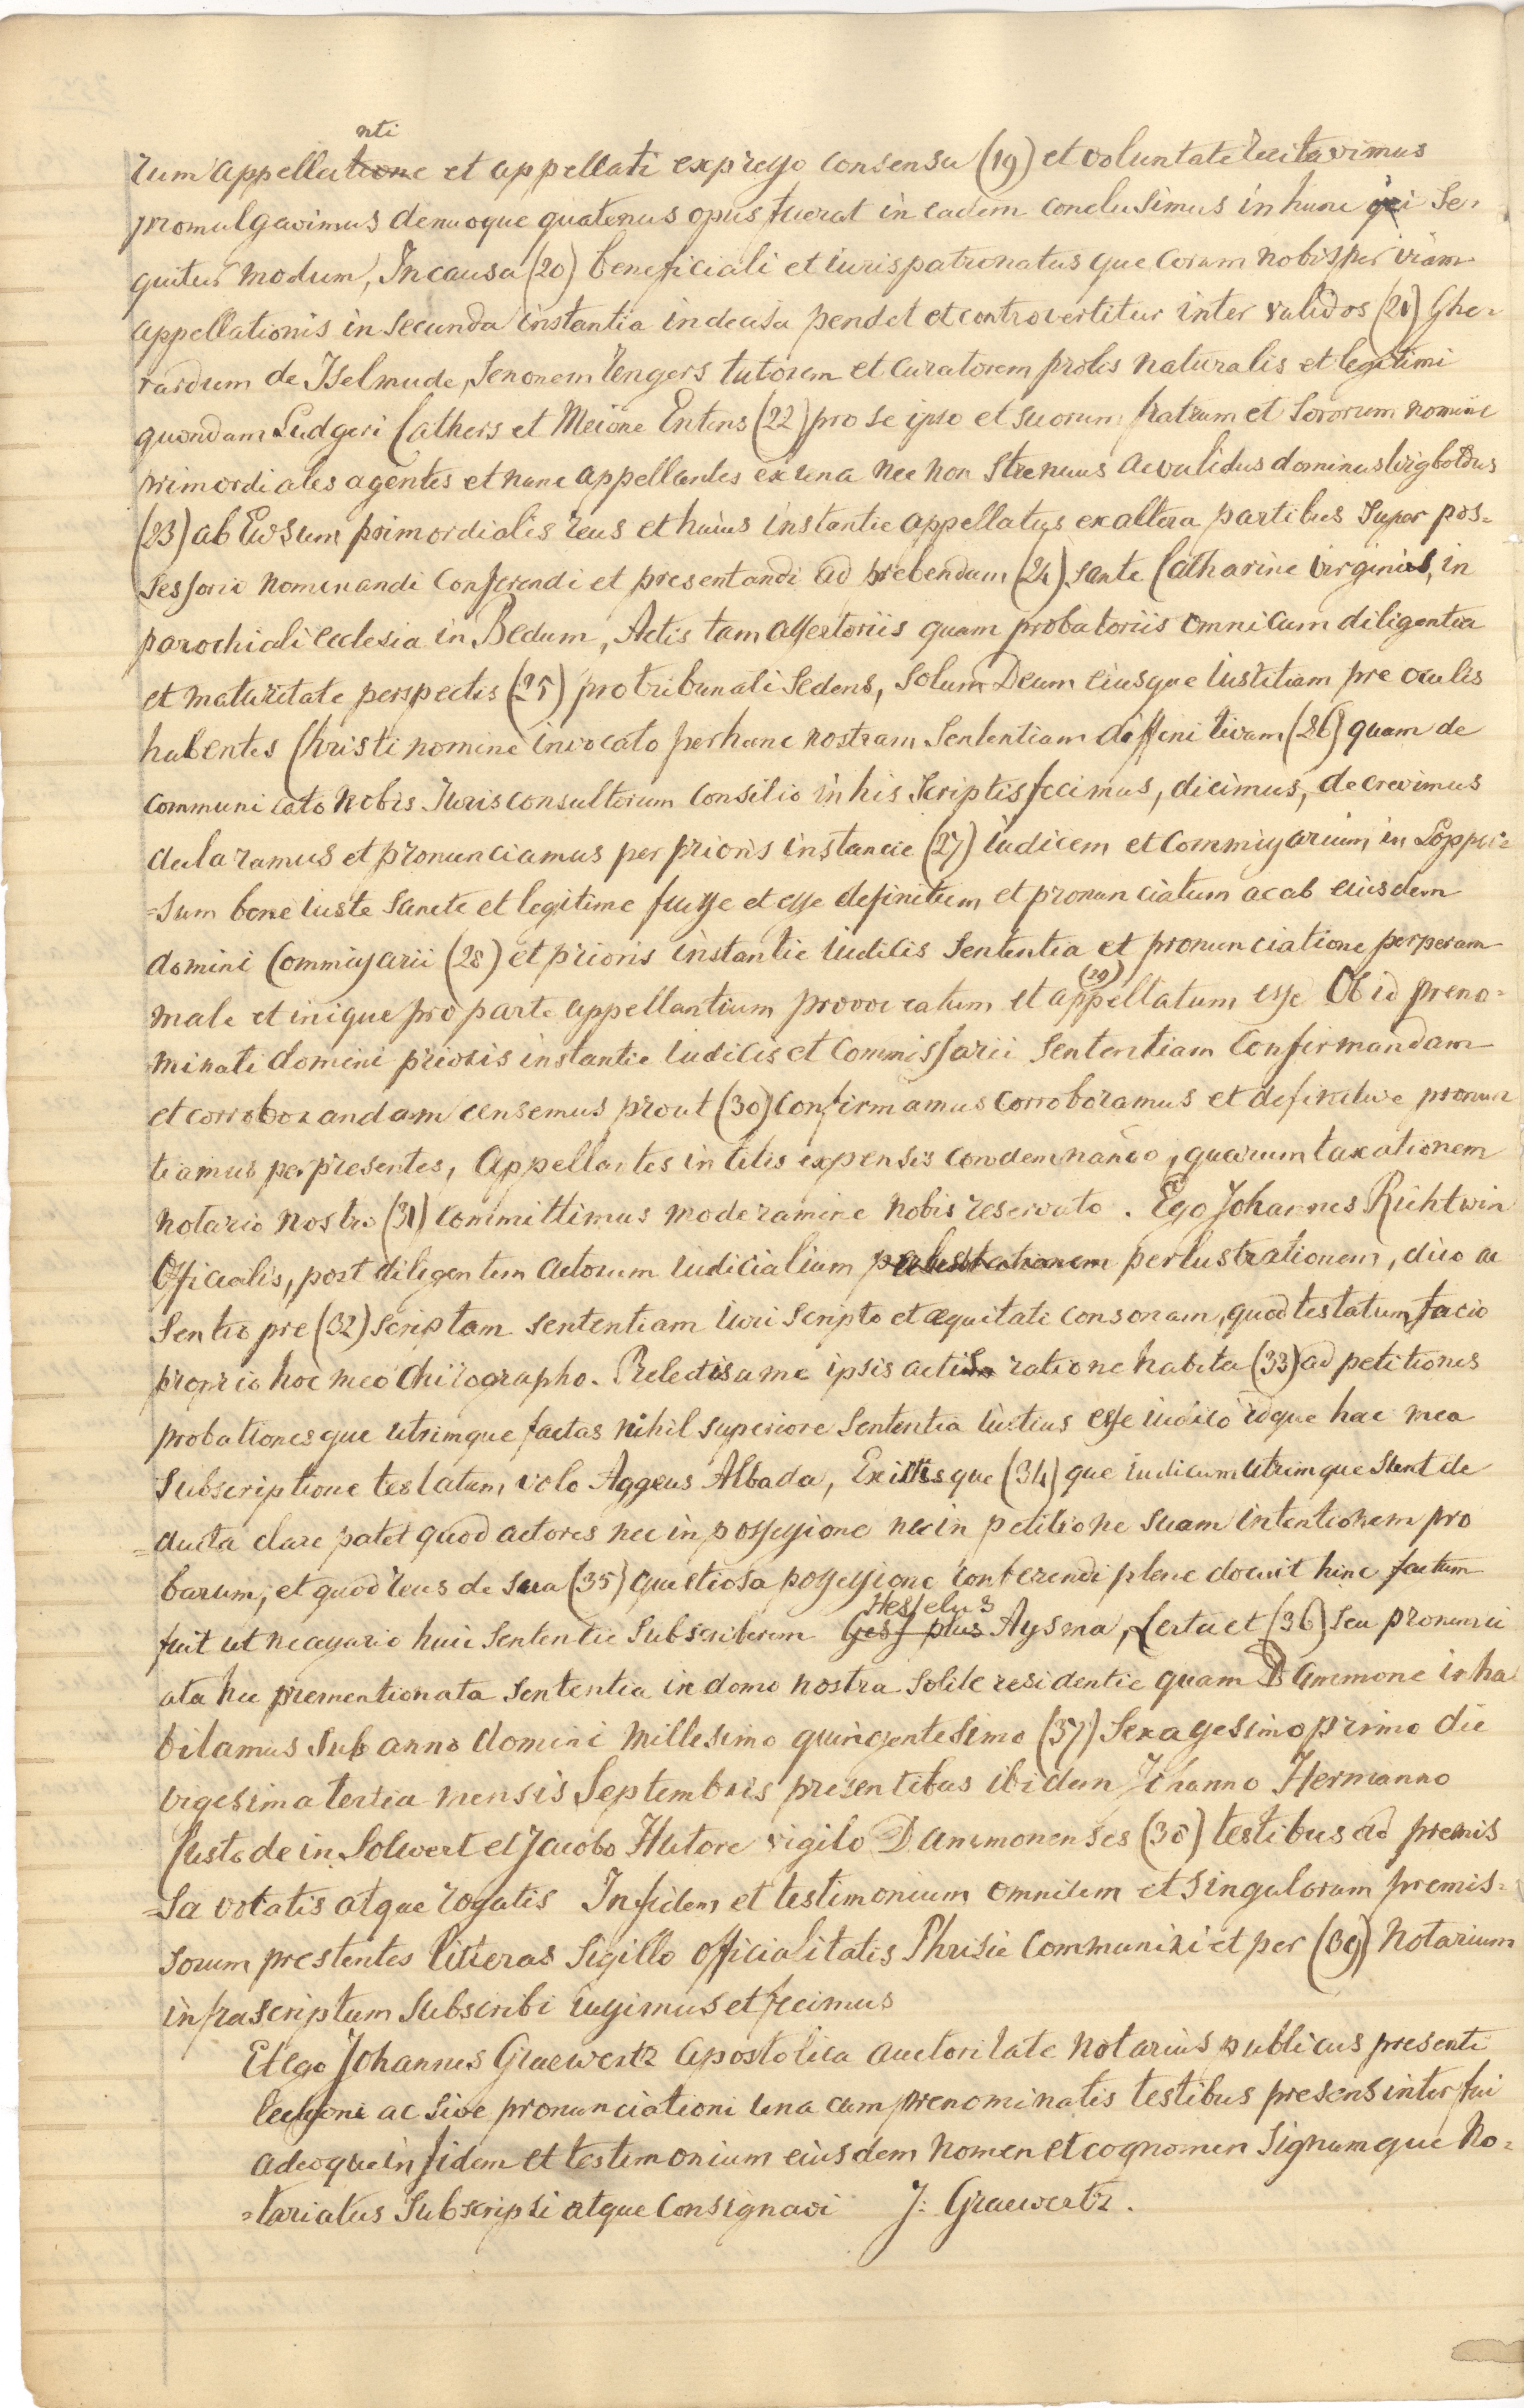 nti
rum appellatione et appellati expresso consensu (19) et voluntate recitavimus
promulgavimus denuoque quatenus opus fuerat in eadem conclusimus in hunc qui Se-
quitur modum, In causa (20) beneficiali et iurispatronatus que coram nobis per viam
appellationis in secunda instantia indecisa pendet et controvertitur inter validos (21) Ghe-
rardum de Iselmude, Senonem Tengers tutorem et curatorem prolis naturalis et legitimi
quondam Ludgeri Cathers et Meione Entens (22) pro se ipso et suorum fratrum et Sororum nomine
primordiales agentes et nunc appellantes ex una nec non Strenuus ac validus dominus Wigboldus
(23) ab Ewsum primordialis reus et huius instantie appellatus ex altera partibus Super pos-
sessorio nominandi Conferendi et presentandi ad prebendam (24) sante Catharine Virginis, in
parochiali ecclesia in Bedum, Actis tam assertoriis quam probatoriis omni cum diligentia
et maturitate perspectis (25) pro tribunali Sedens, Solum Deum eiusque iustitiam pre oculis
habentes Christi nomine invocato per hanc nostram Sententiam diffinitivam (26) quam de
communicato nobis Jurisconsultorum consilio in his Scriptis fecimus, dicimus, decrevimus
declaramus et pronunciamus per prioris instancie (27) iudicem et Commissarium in Lopper-
=sum bene iuste Sancte et legitime fuisse et esse definitum et pronunciatum ac ab eiusdem
domini Commissarii (28) et prioris instantie iudicis Sententia et pronunciatione perperam
male et inique pro parte appellantium provocatum et appellatum (29) esse Ob id preno-
minati domini prioris instantie iudicis et Commissarii Sententiam Confirmandam
et corroborandam censemus prout (30) Confirmamus Corroboramus et definitive pronun
tiamus per presentes, Appellantes in litis expensis condemnando, quarum taxationem
notario nostro (31) committimus moderamine nobis reservato. Ego Johannes Richtwin
Officialis, post diligentem actorum iudicialium perlustrationem, dico ac
Sentio pre (32) scriptam sententiam iuri scripto et æquitati consonam, quod testatum facio
proprio hoc meo Chirographo. Prelectis a me ipsis actis ratione habita (33) ad petitiones
probationesque utrimque factas nihil superiore Sententia iustius esse iudico idque hac mea
Subscriptione testatum volo Aggeus Albada, Ex iisque (34) que iudicium utrimque Sunt de
=ducta clare patet quod actores nec in possessione nec in petitione suam intentionem pro
barum, et quod reus de Sua (35) questiosa possessione conferendi plene docuit hinc factum
fuit ut necessario huic Sententie Subscriberem Hesselus Aysma, Lecta et (36) seu pronunci
ata hec prementionata Sententia in domo nostra Solite residentie quam Dammone inha
bitamus Sub anno domini millesimo quingentesimo (37) Sexagesimo primo die
vigesima tertia mensis Septembris presentibus ibidem Johanno Hermanno
Custode in Solwert et Jacobo Hutore vigilo Dammonenses (38) testibus ad premis
=sa votatis atque rogatis In fidem et testimonium omnium et Singulorum premis-
sorum prestentes litteras Sigillo officialitatis Phrisie Communiri et per (39) Notarium
infrascriptum Subscribi iussimus et fecimus
Et ego Johannes Graewertz apostolica auctoritate notarius publicus presenti
lectioni ac Sive pronunciationi una cum prenominatis testibus presens interfui
adeoque in fidem et testimonium eiusdem nomen et cognomen Signumque No-
=tariatus Subscripsi atque Consignavi J: Graewertz.